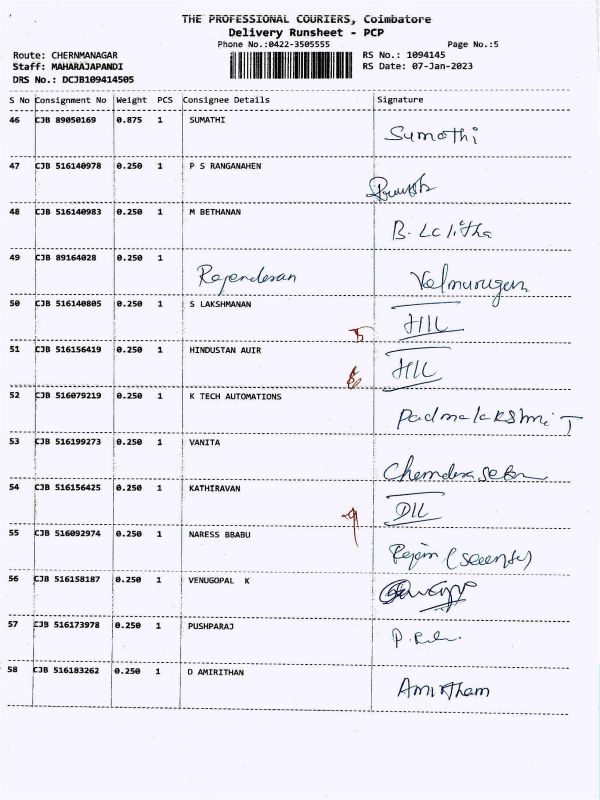 THE PROFESSIONAL COURIERS, Coimbatore
Delivery Runsheet - PCP
Phone No.:0422-3505555 Page No.:5
Route: CHERNMANAGAR RS No.: 1094145
Staff: MAHARAJAPANDI RS Date: 07-Jan-2023
DRS No.: DCJB109414505
S No Consignment No Weight PCS Consignee Details Signature
46 CJB 89050169 0.875 1 SUMATHI
Sumathi
47 CJB 516140978 0.250 1 P S RANGANAHEN
48 CJB 516140983 0.250 1 M BETHANAN
B. Lalitha
49 CJB 89164028 0.250 1
Rajenderan Velmurugan
50 CJB 516140805 0.250 1 S LAKSHMANAN
51 CJB 516156419 0.250 1 HINDUSTAN AUIR
52 CJB 516079219 0.250 1 K TECH AUTOMATIONS
Padmalakshmi T
53 CJB 516199273 0.250 1 VANITA
54 CJB 516156425 0.250 1 KATHIRAVAN
55 CJB 516092974 0.250 1 NARESS BBABU
56 CJB 516158187 0.250 1 VENUGOPAL K
57 CJB 516173978 0.250 1 PUSHPARAJ
58 CJB 516183262 0.250 1 D AMIRITHAN
Amirtham